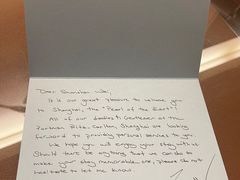 Dear Shanshan Wei,
It is our great pleasure to welcome you
to Shanghai, the "Pearl of the East"!
All of our Ladies & Gentlemen at the
Portman Ritz-Carlton, Shanghai are looking
forward to providing personal services to you.
We hope you will enjoy your stay with us.
Should there be anything that we can do to
make your stay memorable one, please do not
hesitate to let me know.